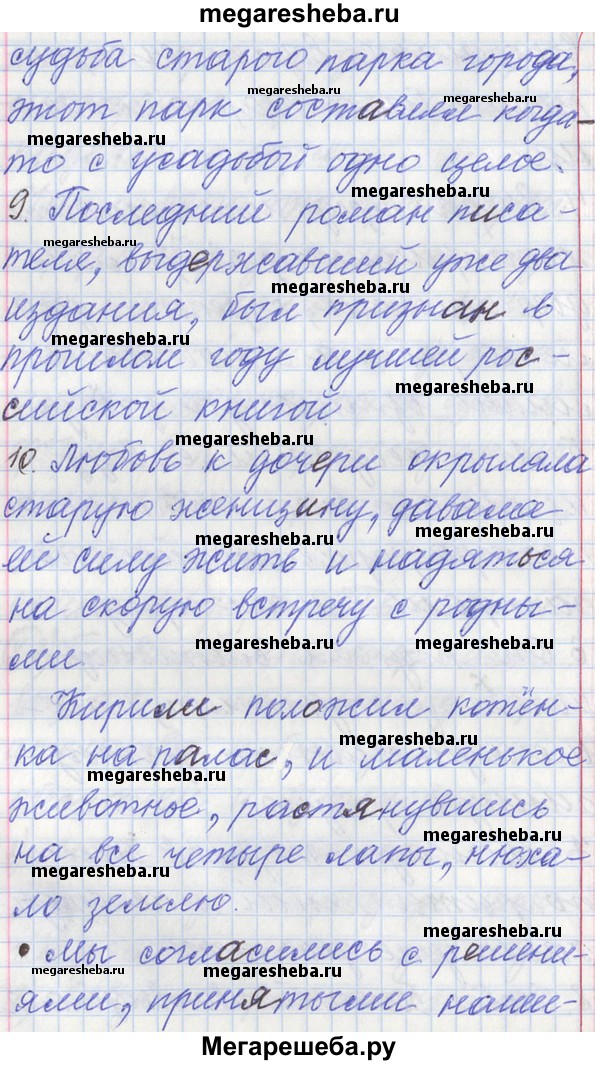 megaresheba.ru
судьба старого парка города,
megaresheba.ru
megaresheba.ru
этот парк составлял когда-
megaresheba.ru
то с усадьбой одно целое.
megaresheba.ru
9. Последний роман писа-
megaresheba.ru
теля, выдержавший уже два
megaresheba.ru
издания, был признан в
megaresheba.ru
прошлом году лучшей рос-
megaresheba.ru
сийской книгой
megaresheba.ru
10. Любовь к дочери окрыляла
старую женщину, давала
megaresheba.ru
megaresheba.ru
ей силу жить и надяться
на скорую встречу с родны-
megaresheba.ru
megaresheba.ru
ми
Кирилл положил котён-
megaresheba.ru
ка на палас, и маленькое
megaresheba.ru
животное, растянувшись
megaresheba.ru
на все четыре лапы, нюха-
megaresheba.ru
ло землю.
megaresheba.ru
• Мы согласились с решени-
megaresheba.ru
megaresheba.ru
ями, принятыми наши-
Мегарешеба.ру